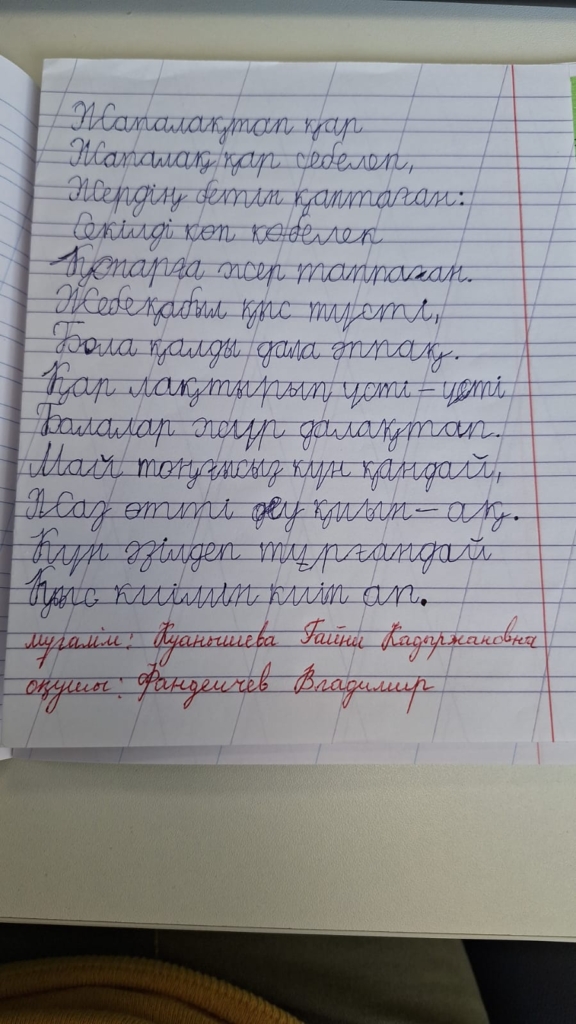 Жапалақтап қар
Жапалақ қар себелеп,
Жердің бетін қаптаған:
Секілді көп көбелек
Қонарға жер таппаған.
Жебеқабыл қыс түсті,
Бола қалды дала әппақ.
Қар лақтырып үсті-үсті
Балалар жүр далақтап.
Май тоңғысыз күн қандай,
Жаз өтті деу қиын-ақ.
Күн әзілдеп тұрғандай
Қыс киімін киіп ап.
мұғалім: Қуанышева Гайни Кадыржановна
оқушы: Фандеичев Владимир